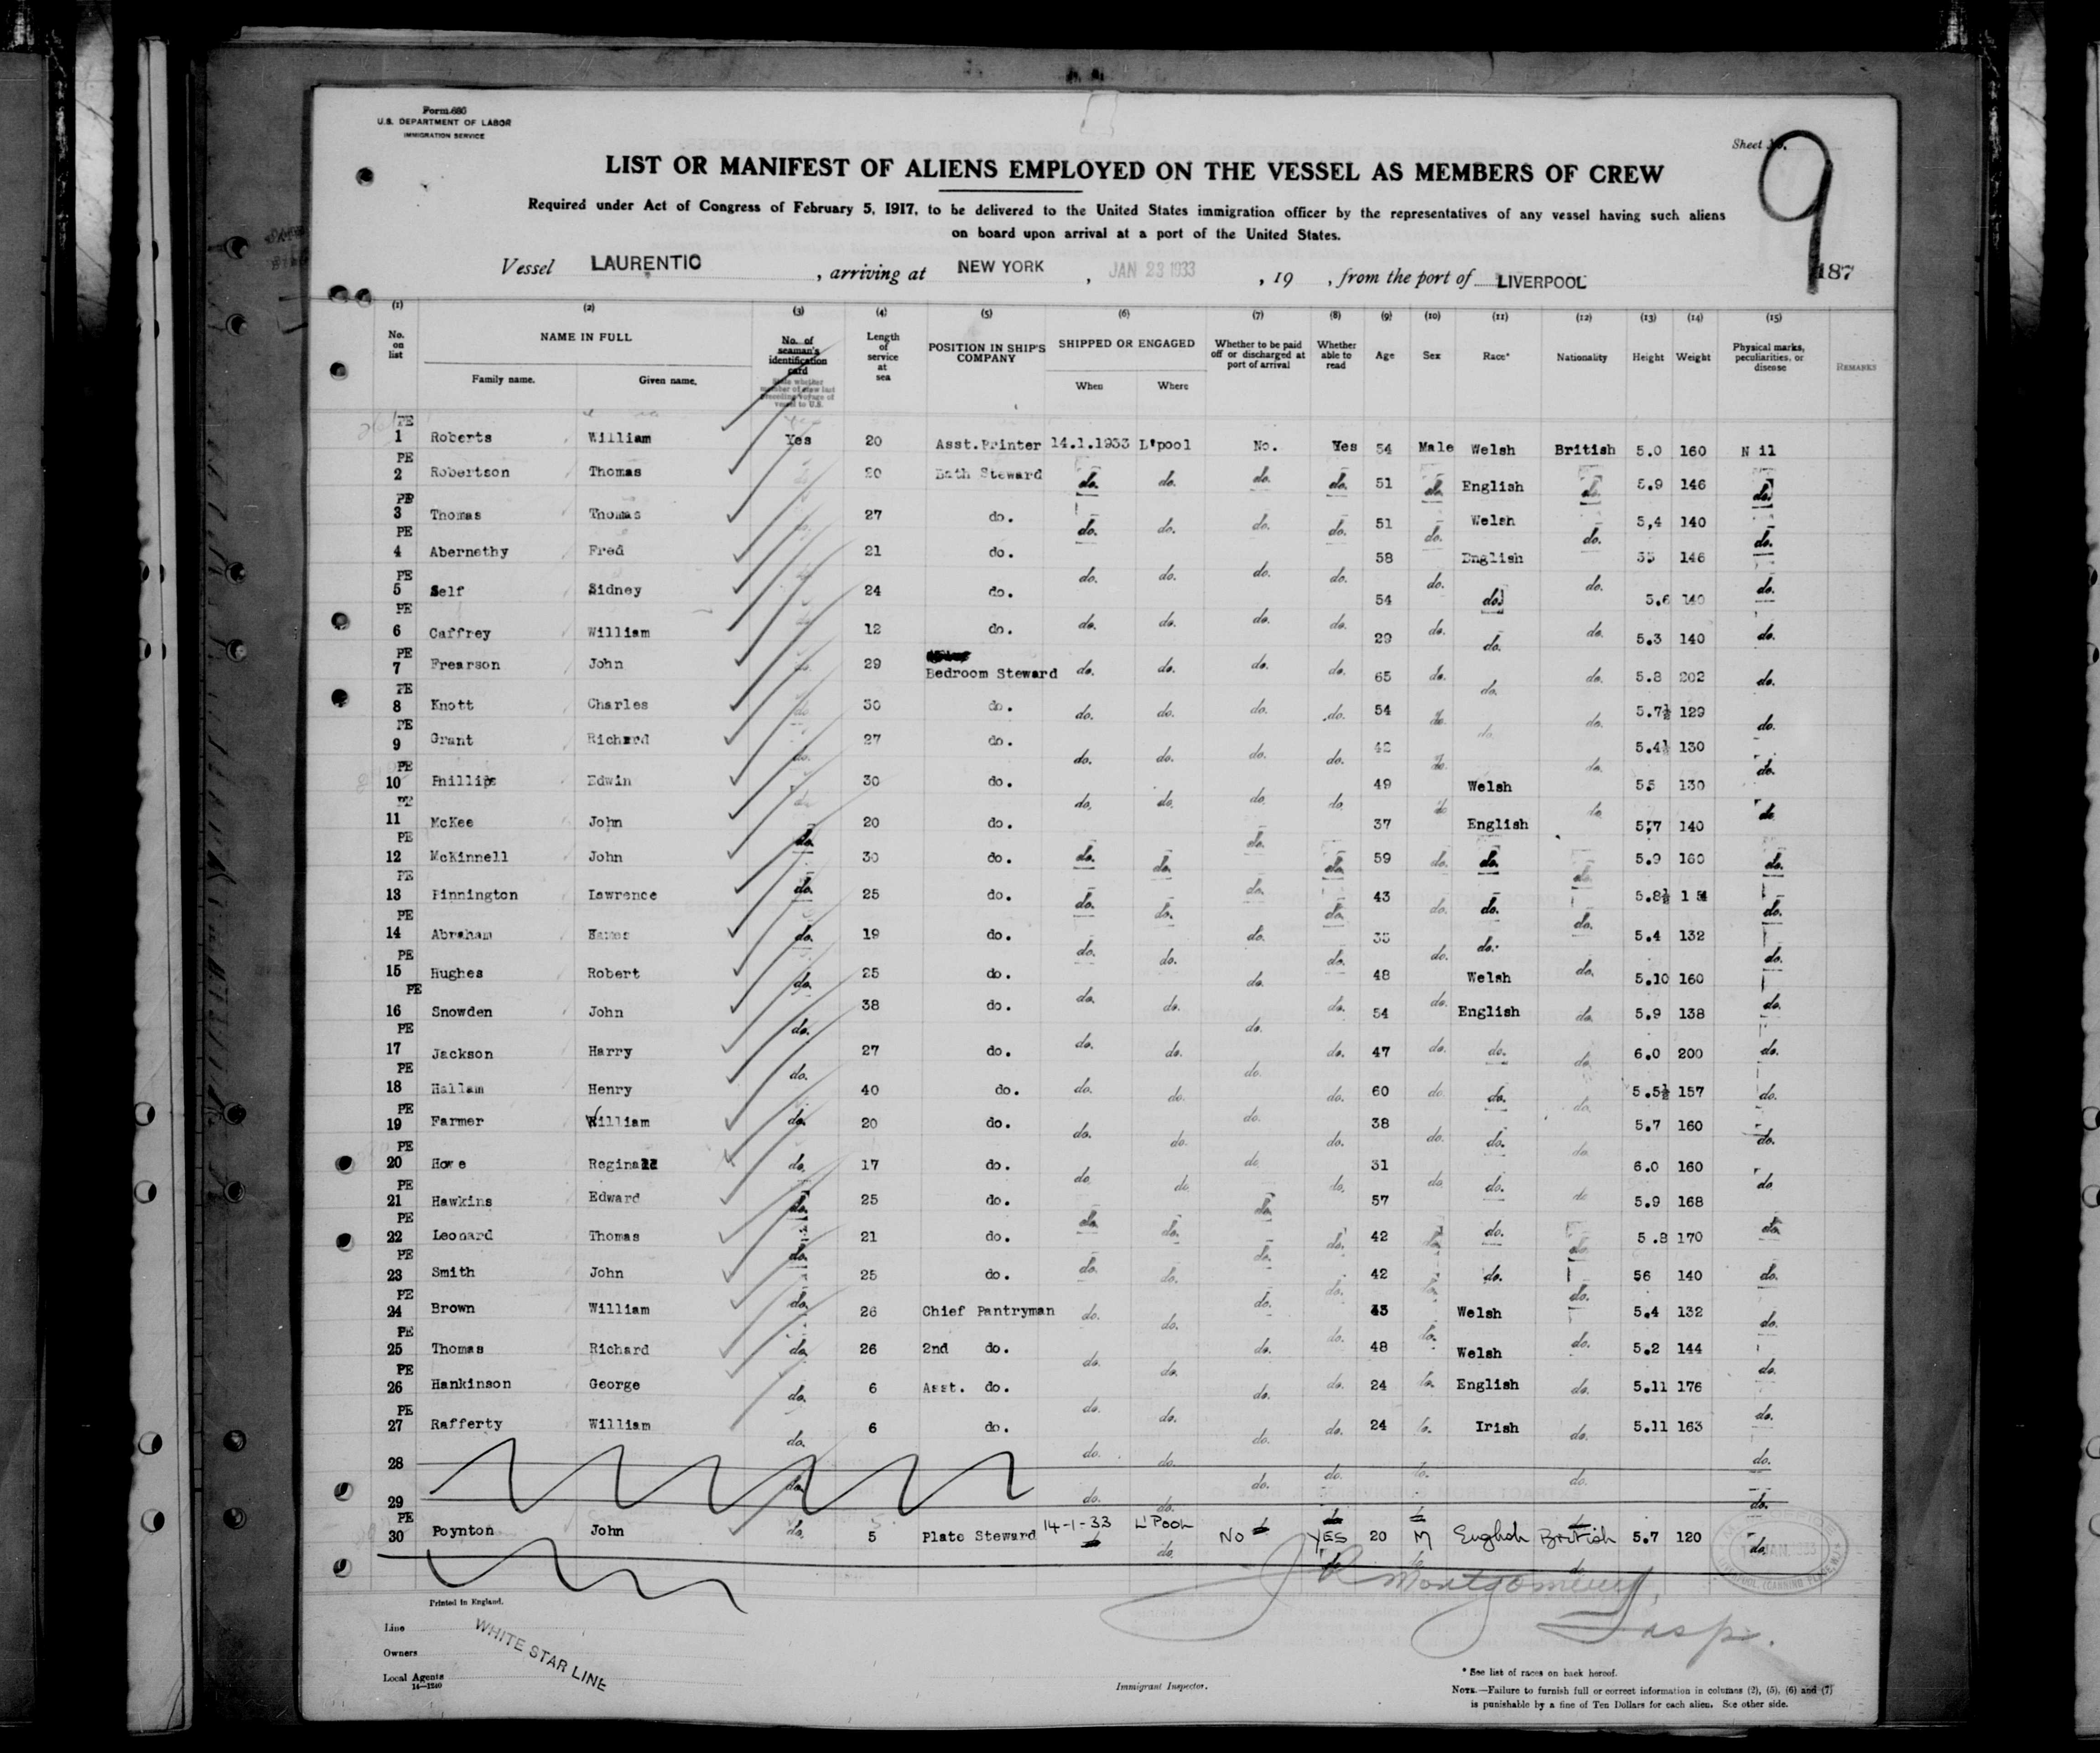 Form 680
U.S. DEPARTMENT OF LABOR
IMMIGRATION SERVICE
Sheet No. 9
LIST OR MANIFEST OF ALIENS EMPLOYED ON THE VESSEL AS MEMBERS OF CREW
Required under Act of Congress of February 5, 1917, to be delivered to the United States immigration officer by the representatives of any vessel having such aliens
on board upon arrival at a port of the United States.
Vessel LAURENTIC , arriving at NEW YORK , JAN 23 1933 , 19 , from the port of LIVERPOOL
187
(1) (2) (3) (4) (5) (6) (7) (8) (9) (10) (11) (12) (13) (14) (15)
No. on list NAME IN FULL Family name. Given name. No. of seaman's identification card Length of service at sea POSITION IN SHIP'S COMPANY SHIPPED OR ENGAGED When Where Whether to be paid off or discharged at port of arrival Whether able to read Age Sex Race* Nationality Height Weight Physical marks, peculiarities, or disease REMARKS
PE 1 Roberts William Yes 20 Asst.Printer 14.1.1933 L'pool No. Yes 54 Male Welsh British 5.0 160 Nil
PE 2 Robertson Thomas 20 Bath Steward do. do. do. do. 51 do. English do. 5.9 146 do.
PE 3 Thomas Thomas 27 do. do. do. do. do. 51 do. Welsh do. 5,4 140 do.
PE 4 Abernethy Fred 21 do. do. do. do. do. 58 do. English do. 55 146 do.
PE 5 Self Sidney 24 do. do. do. do. do. 54 do. do. do. 5.6 140 do.
PE 6 Caffrey William 12 do. do. do. do. do. 29 do. do. do. 5.3 140 do.
PE 7 Frearson John 29 Bedroom Steward do. do. do. do. 65 do. do. do. 5.8 202 do.
PE 8 Knott Charles 30 do. do. do. do. do. 54 do. do. do. 5.7½ 129 do.
PE 9 Grant Richard do. 27 do. do. do. do. do. 42 do. do. 5.4½ 130 do.
PE 10 Phillips Edwin do. 30 do. do. do. do. do. 49 do. Welsh do. 55 130 do.
PE 11 McKee John do. 20 do. do. 37 English 5;7 140
PE 12 McKinnell John 30 do. do. do. do. 59 do. do. do. 5.9 160 do.
PE 13 Pinnington Lawrence do. 25 do. do. do. do. do. 43 do. do. do. 5.8½ do.
PE 14 Abraham do. 19 do. do. do. do. do. 35 do. do. do. 5.4 132 do.
PE 15 Hughes Robert do. 25 do. do. do. do. do. 48 do. Welsh do. 5.10 160 do.
PE 16 Snowden John do. 38 do. do. do. do. do. 54 do. English do. 5.9 138 do.
PE 17 Jackson Harry do. 27 do. do. do. do. do. 47 do. do. do. 6.0 200 do.
PE 18 Hallam Henry 40 do. do. do. do. do. 60 do. do. do. 5.5½ 157 do.
PE 19 Farmer William do. 20 do. do. do. do. do. 38 do. do. do. 5.7 160 do.
PE 20 Howe Reginald do. 17 do. do. do. do. do. 31 do. do. do. 6.0 160 do.
PE 21 Hawkins Edward do. 25 do. do. do. do. 57 5.9 168 do.
PE 22 Leonard Thomas do. 21 do. do. do. do. do. 42 do. do. do. 5.8 170
PE 23 Smith John do. 25 do. do. do. do. do. 42 do. do. do. 56 140 do.
PE 24 Brown William 26 Chief Pantryman do. do. do. do. 43 do. Welsh do. 5.4 132 do.
PE 25 Thomas Richard do. 26 2nd do. do. do. do. do. 48 do. Welsh do. 5.2 144 do.
PE 26 Hankinson George do. 6 Asst. do. do. do. do. do. 24 do. English do. 5.11 176 do.
PE 27 Rafferty William do. 6 do. do. do. do. do. 24 do. Irish do. 5.11 163 do.
28 do. do. do. do. do. do. do. do.
29 do. do. do.
PE 30 Poynton John do. 5 Plate Steward 14-1-33 L'Pool No YES 20 M English British 5.7 120 do.
J R Montgomery,
Insp.
Printed in England.
Line
Owners
WHITE STAR LINE
Local Agents
14—1240
Immigrant Inspector.
* See list of races on back hereof.
NOTE.—Failure to furnish full or correct information in columns (2), (5), (6) and (7)
is punishable by a fine of Ten Dollars for each alien. See other side.